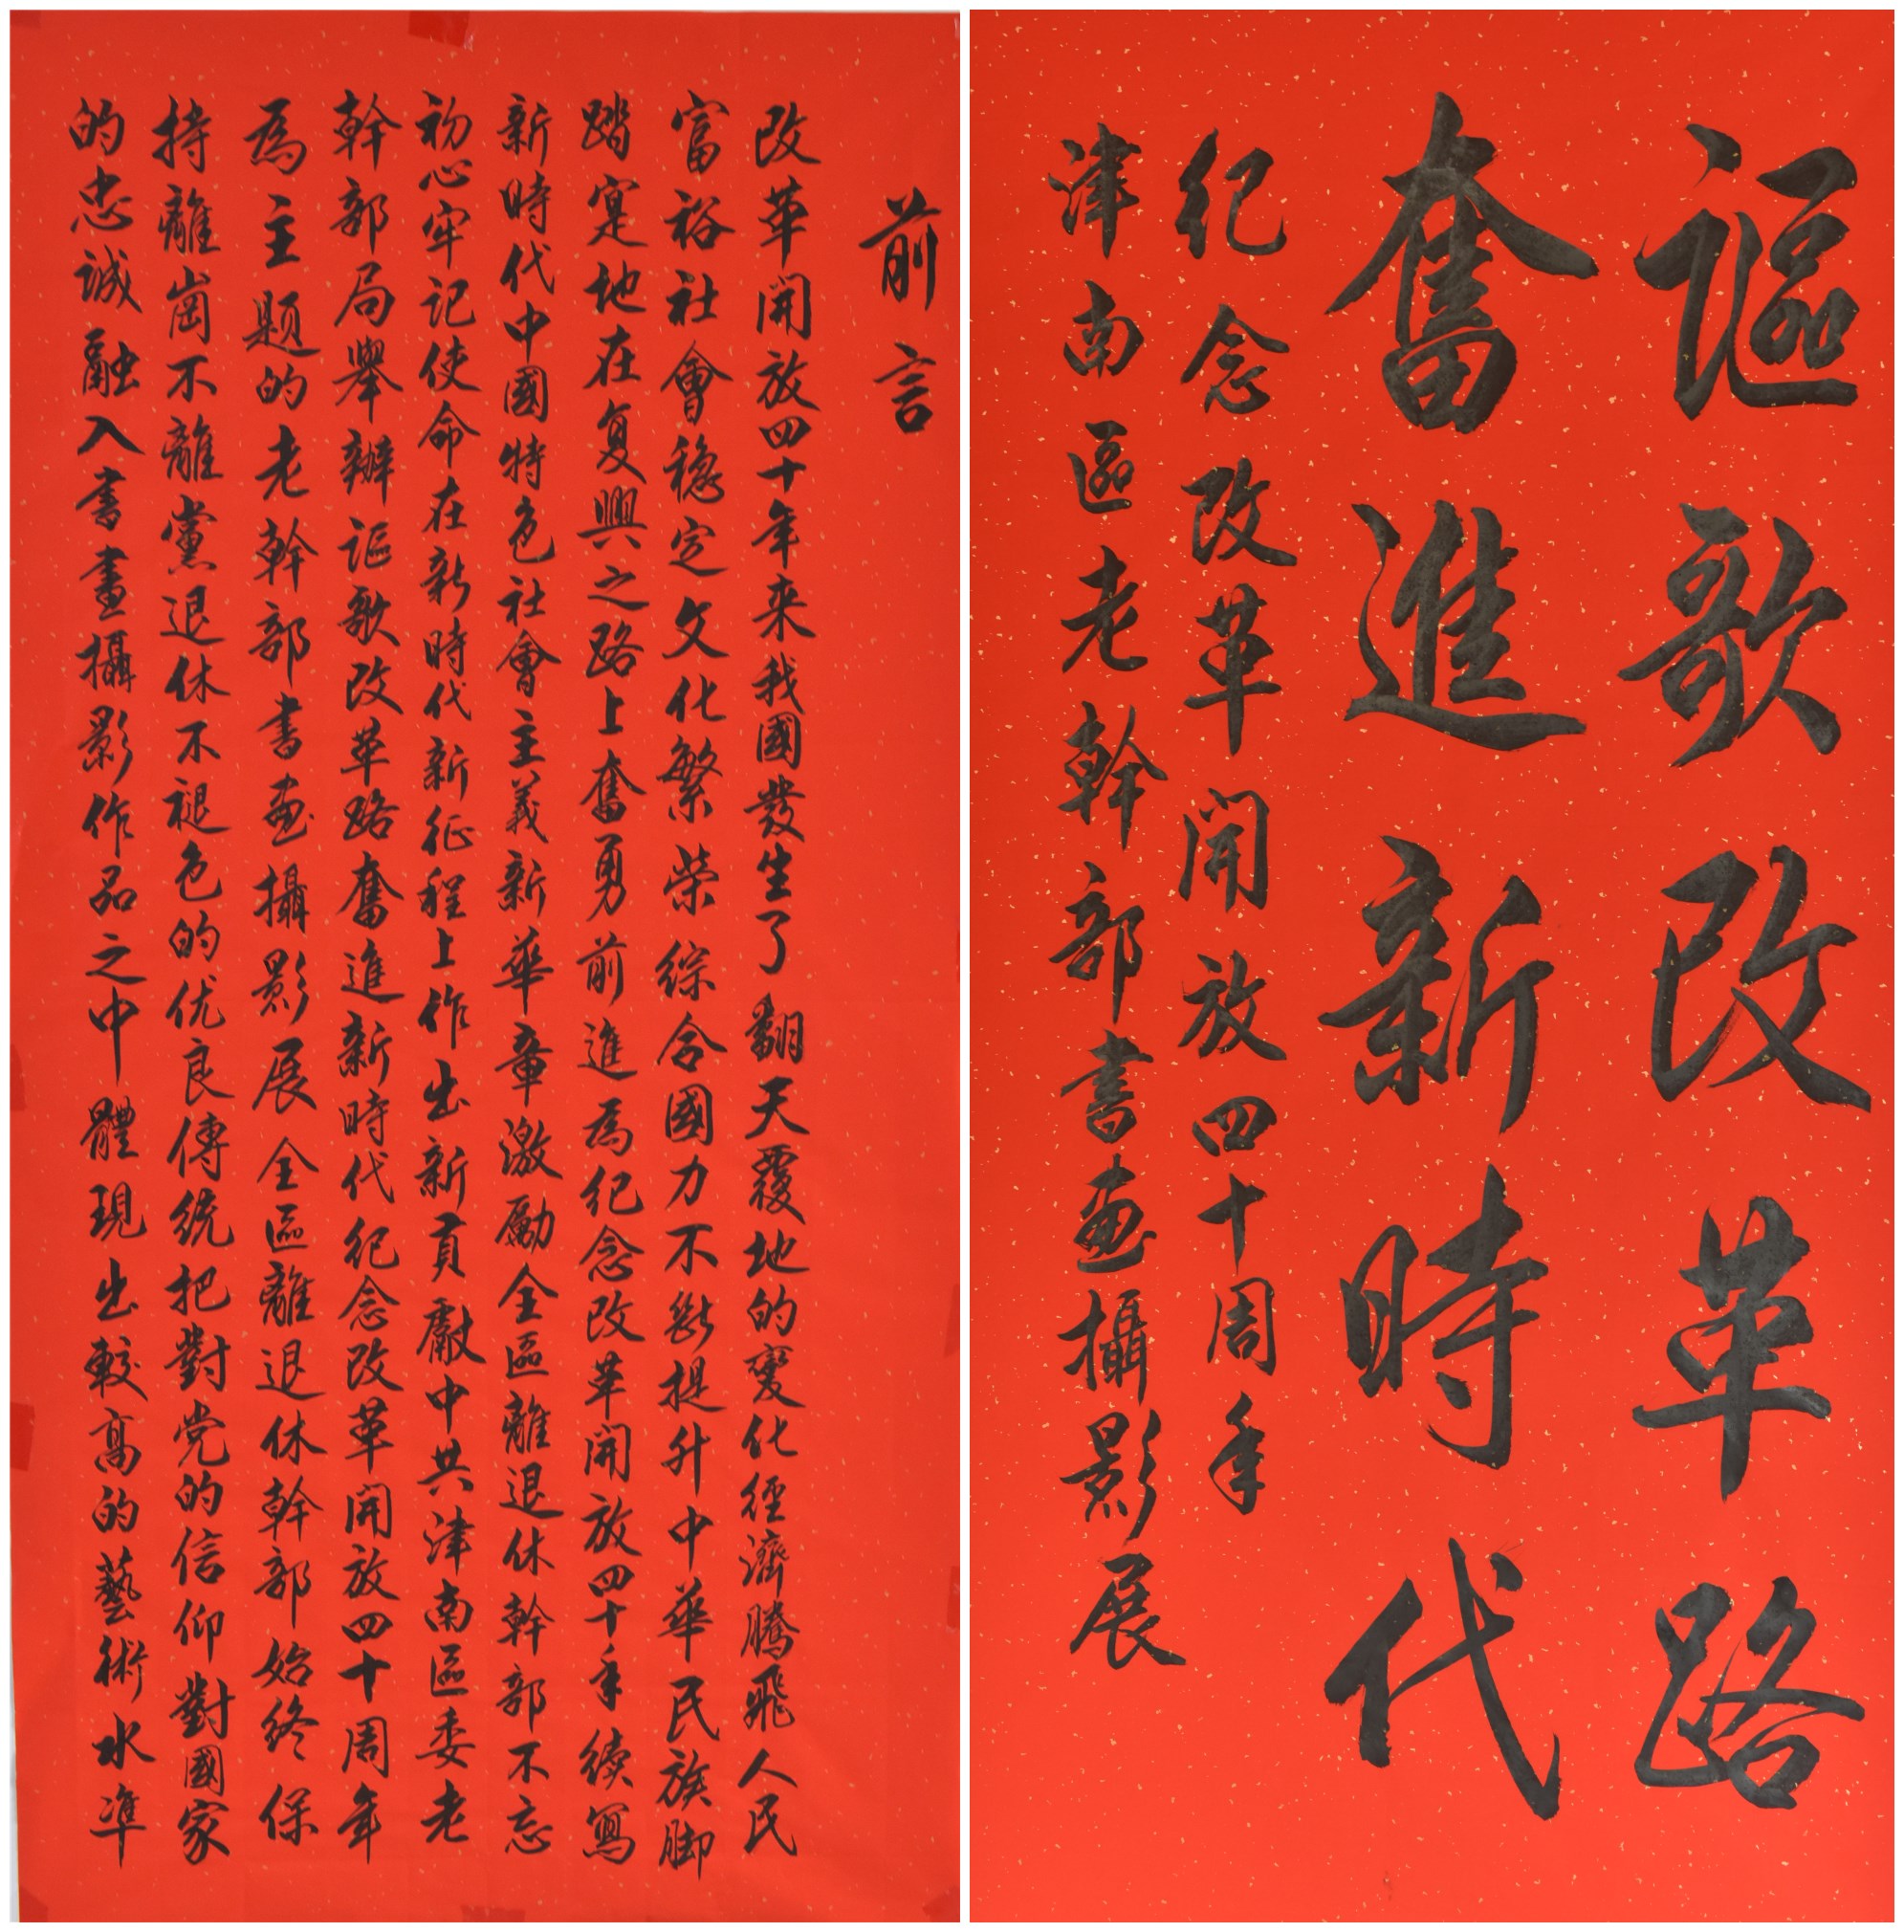 謳歌改革路
奮進新時代
紀念改革開放四十周年
津南區老幹部書畫攝影展
前言
改革開放四十年來我國發生了翻天覆地的變化經濟騰飛人民
富裕社會穩定文化繁榮綜合國力不斷提升中華民族腳
踏寔地在复興之路上奮勇前進為紀念改革開放四十年續寫
新時代中國特色社會主義新華章激勵全區離退休幹部不忘
初心牢記使命在新時代新征程上作出新貢獻中共津南區委老
幹部局舉辦謳歌改革路奮進新時代紀念改革開放四十周年
為主題的老幹部書畫攝影展全區離退休幹部始終保
持離崗不離黨退休不褪色的优良傳統把對党的信仰對國家
的忠誠融入書畫攝影作品之中體現出較高的藝術水準